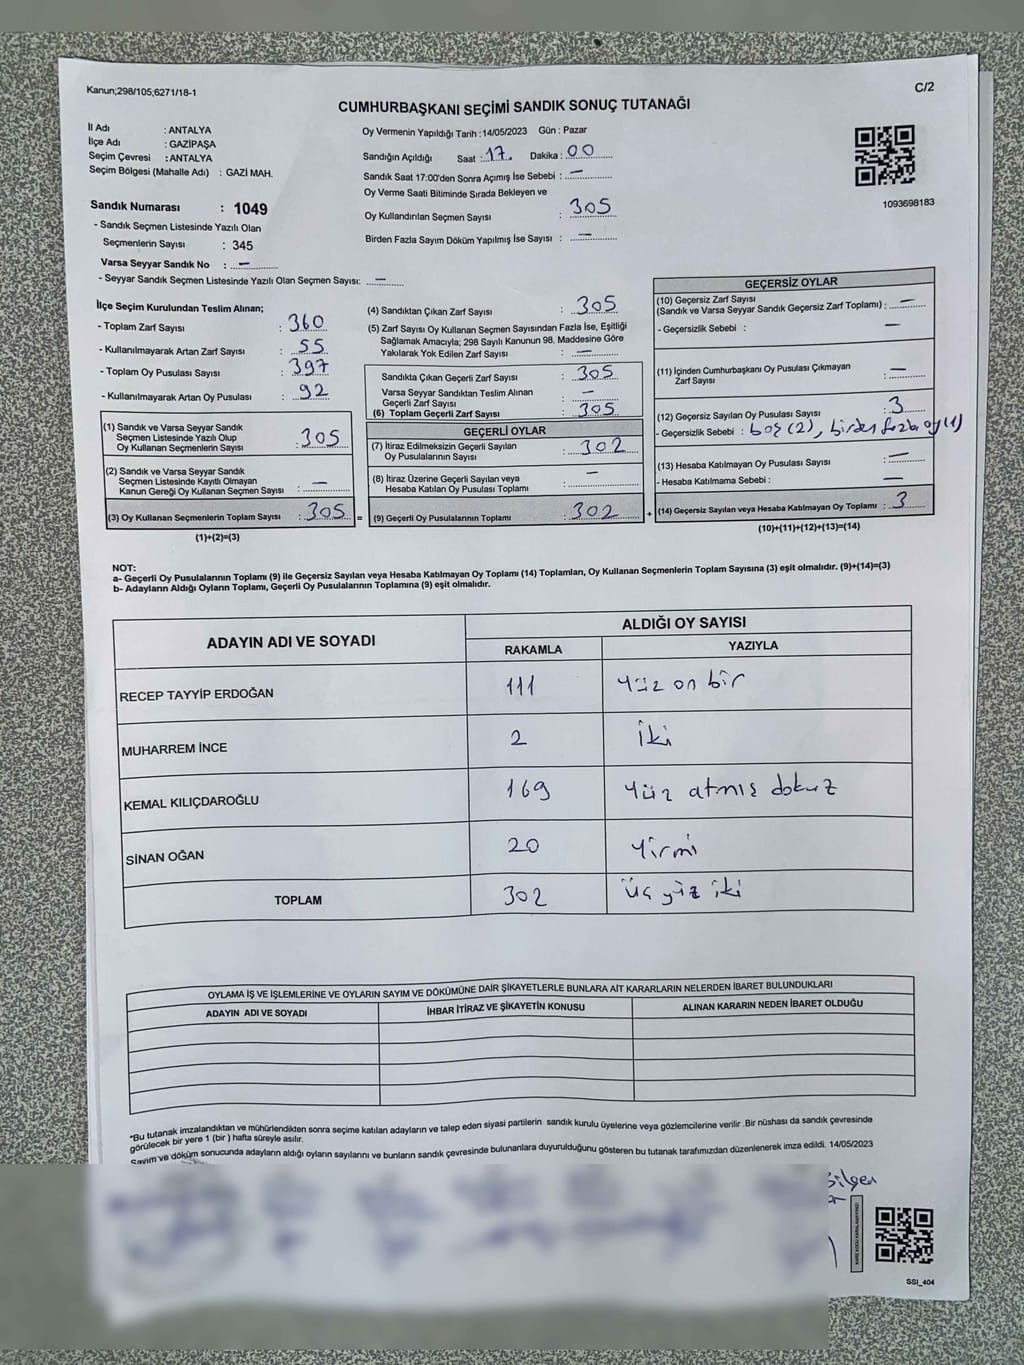 Kanun;298/105;6271/18-1
C/2
CUMHURBAŞKANI SEÇİMİ SANDIK SONUÇ TUTANAĞI
İl Adı : ANTALYA
İlçe Adı : GAZİPAŞA
Seçim Çevresi : ANTALYA
Seçim Bölgesi (Mahalle Adı) : GAZİ MAH.
Sandık Numarası : 1049
- Sandık Seçmen Listesinde Yazılı Olan
Seçmenlerin Sayısı : 345
Varsa Seyyar Sandık No : —
- Seyyar Sandık Seçmen Listesinde Yazılı Olan Seçmen Sayısı: —
Oy Vermenin Yapıldığı Tarih : 14/05/2023 Gün : Pazar
Sandığın Açıldığı Saat : 17. Dakika : 00
Sandık Saat 17:00'den Sonra Açımış İse Sebebi : —
Oy Verme Saati Bitiminde Sırada Bekleyen ve
Oy Kullandırılan Seçmen Sayısı : 305
Birden Fazla Sayım Döküm Yapılmış İse Sayısı : —
1093698183
İlçe Seçim Kurulundan Teslim Alınan;
- Toplam Zarf Sayısı : 360
- Kullanılmayarak Artan Zarf Sayısı : 55
- Toplam Oy Pusulası Sayısı : 397
- Kullanılmayarak Artan Oy Pusulası : 92
(1) Sandık ve Varsa Seyyar Sandık
Seçmen Listesinde Yazılı Olup
Oy Kullanan Seçmenlerin Sayısı : 305
(2) Sandık ve Varsa Seyyar Sandık
Seçmen Listesinde Kayıtlı Olmayan
Kanun Gereği Oy Kullanan Seçmen Sayısı : —
(3) Oy Kullanan Seçmenlerin Toplam Sayısı : 305
(1)+(2)=(3)
=
(4) Sandıktan Çıkan Zarf Sayısı : 305
(5) Zarf Sayısı Oy Kullanan Seçmen Sayısından Fazla İse, Eşitliği
Sağlamak Amacıyla; 298 Sayılı Kanunun 98. Maddesine Göre
Yakılarak Yok Edilen Zarf Sayısı : —
Sandıkta Çıkan Geçerli Zarf Sayısı : 305
Varsa Seyyar Sandıktan Teslim Alınan
Geçerli Zarf Sayısı : —
(6) Toplam Geçerli Zarf Sayısı : 305
GEÇERLİ OYLAR
(7) İtiraz Edilmeksizin Geçerli Sayılan
Oy Pusulalarının Sayısı : 302
(8) İtiraz Üzerine Geçerli Sayılan veya
Hesaba Katılan Oy Pusulası Toplamı : —
(9) Geçerli Oy Pusulalarının Toplamı : 302
+
GEÇERSİZ OYLAR
(10) Geçersiz Zarf Sayısı
(Sandık ve Varsa Seyyar Sandık Geçersiz Zarf Toplamı) : —
- Geçersizlik Sebebi : —
(11) İçinden Cumhurbaşkanı Oy Pusulası Çıkmayan
Zarf Sayısı : —
(12) Geçersiz Sayılan Oy Pusulası Sayısı : 3
- Geçersizlik Sebebi : boş (2), birden fazla oy (1)
(13) Hesaba Katılmayan Oy Pusulası Sayısı : —
- Hesaba Katılmama Sebebi : —
(14) Geçersiz Sayılan veya Hesaba Katılmayan Oy Toplamı : 3
(10)+(11)+(12)+(13)=(14)
NOT:
a- Geçerli Oy Pusulalarının Toplamı (9) ile Geçersiz Sayılan veya Hesaba Katılmayan Oy Toplamı (14) Toplamları, Oy Kullanan Seçmenlerin Toplam Sayısına (3) eşit olmalıdır. (9)+(14)=(3)
b- Adayların Aldığı Oyların Toplamı, Geçerli Oy Pusulalarının Toplamına (9) eşit olmalıdır.
ADAYIN ADI VE SOYADI
ALDIĞI OY SAYISI
RAKAMLA YAZIYLA
RECEP TAYYİP ERDOĞAN 111 Yüz on bir
MUHARREM İNCE 2 iki
KEMAL KILIÇDAROĞLU 169 Yüz atmış dokuz
SİNAN OĞAN 20 Yirmi
TOPLAM 302 Üç yüz iki
OYLAMA İŞ VE İŞLEMLERİNE VE OYLARIN SAYIM VE DÖKÜMÜNE DAİR ŞİKAYETLERLE BUNLARA AİT KARARLARIN NELERDEN İBARET BULUNDUKLARI
ADAYIN ADI VE SOYADI İHBAR İTİRAZ VE ŞİKAYETİN KONUSU ALINAN KARARIN NEDEN İBARET OLDUĞU
*Bu tutanak imzalandıktan ve mühürlendikten sonra seçime katılan adayların ve talep eden siyasi partilerin sandık kurulu üyelerine veya gözlemcilerine verilir .Bir nüshası da sandık çevresinde
görülecek bir yere 1 (bir ) hafta süreyle asılır.
Sayım ve döküm sonucunda adayların aldığı oyların sayılarını ve bunların sandık çevresinde bulunanlara duyurulduğunu gösteren bu tutanak tarafımızdan düzenlenerek imza edildi. 14/05/2023
Bilgen
SSI_404